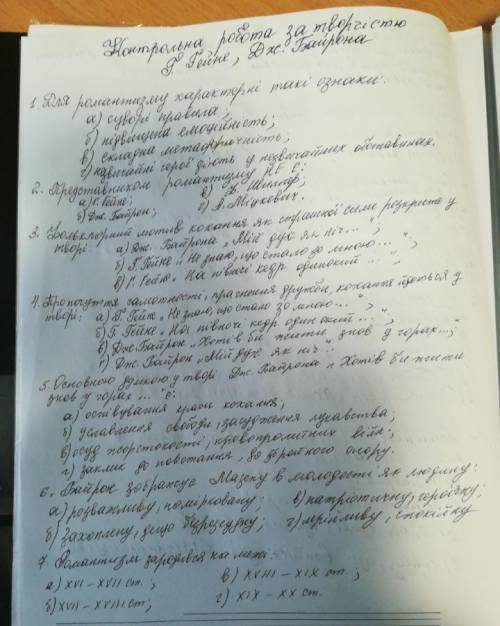 Контрольна робота за творчістю
Г. Гейне, Дж. Байрона
1. Для романтизму характерні такі ознаки:
а) суворі правила;
б) підвищена емоційність;
в) складна метафоричність;
г) звичайні герої діють у незвичайних обставинах.
2. Представником романтизму НЕ Є:
а) Г. Гейне; в) Ф. Шиллер;
б) Дж. Байрон; г) А. Міцкевич.
3. Фольклорний мотив кохання як страшної сили розкрито у
творі: а) Дж. Байрона „Мій дух як ніч...";
б) Г. Гейне „Не знаю, що стало зо мною...";
в) Г. Гейне „На півночі кедр одинокий...",
4. Про почуття самотності, прагнення дружби, кохання йдеться у
творі: а) Г. Гейне „Не знаю, що стало зо мною...";
б) Г. Гейне „На півночі кедр одинокий...";
в) Дж. Байрон „Хотів би жити знов у горах...";
г) Дж. Байрон „Мій дух як ніч..."
5. Основною думкою у творі Дж. Байрона „Хотів би жити
знов у горах..." є:
а) оспівування краси кохання;
б) уславлення свободи, засудження лукавства;
в) осуд жорстокості, кровопролитних війн;
г) заклик до повстання, до збройного опору.
6. Байрон зображує Мазепу в молодості як людину:
а) розважливу, помірковану; в) патріотичну, героїчну;
б) захоплену, дещо безрозсудну; г) мрійливу, спокійну
7. Романтизм зародився на межі:
а) XVI – XVII ст.; в) XVIII – XIX ст.;
б) XVII – XVIII ст; г) XIX – XX ст.